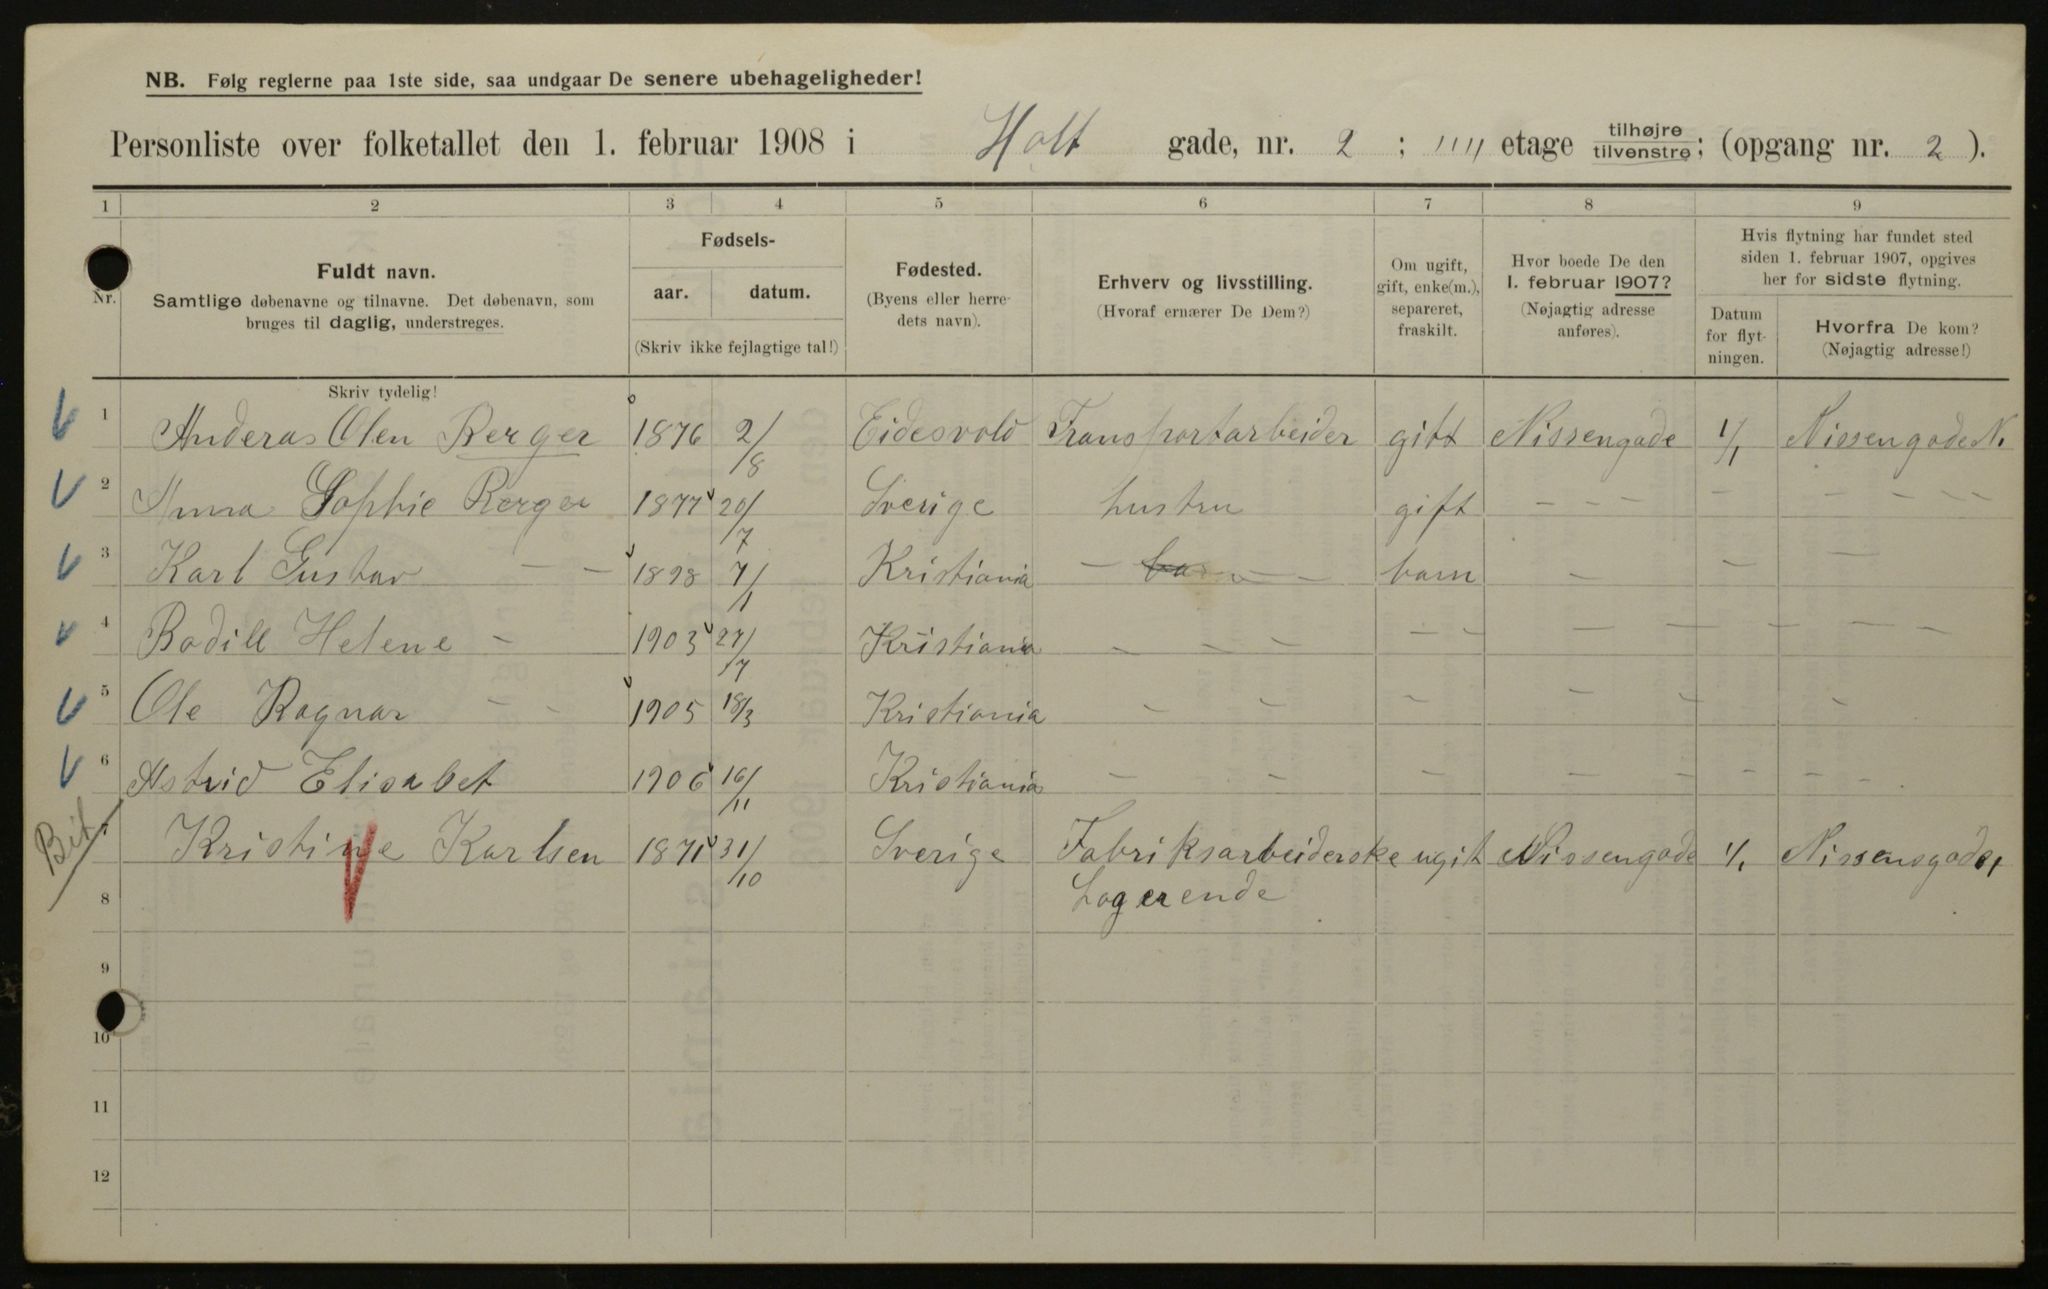 NB. Følg reglerne paa 1ste side, saa undgaar De senere ubehageligheder!
Personliste over folketallet den 1. februar 1908 i Holt gade, nr. 2 ; etage tilhøjre tilvenstre ; (opgang nr. 2 ).
1 2 3 4 5 6 7 8 9
Nr.
Fuldt navn.
Samtlige døbenavne og tilnavne. Det døbenavn, som
bruges til daglig, understreges.
Fødsels-
aar. datum.
(Skriv ikke fejlagtige tal!)
Fødested.
(Byens eller herre-
dets navn).
Erhverv og livsstilling.
(Hvoraf ernærer De Dem?)
Om ugift,
gift, enke(m.),
separeret,
fraskilt.
Hvor boede De den
1. februar 1907?
(Nøjagtig adresse
anføres).
Hvis flytning har fundet sted
siden 1. februar 1907, opgives
her for sidste flytning.
Datum
for flyt-
ningen.
Hvorfra De kom?
(Nøjagtig adresse!)
Skriv tydelig!
1 Anderas Olen Berger 1876 2/8 Eidesvold Transportarbeider gift Nissengade 1/1 Nissengade N.
2 Anna Sophie Berger 1877 20/7 Sverige hustru gift – – – – – – – –
3 Karl Gustav – – 1898 7/1 Kristiania – – – barn – – –
4 Bodill Helene – 1903 27/7 Kristiania – – – – – – – – – –
5 Ole Ragnar – – 1905 18/3 Kristiania – – – – – –
6 Astrid Elisabet 1906 16/11 Kristiania – – – – – – – – –
Kristine Karlsen 1871 31/10 Sverige Fabriksarbeiderske ugit Nissengade 1/1 Nissensgade,
8 Logerende
9
10
11
12